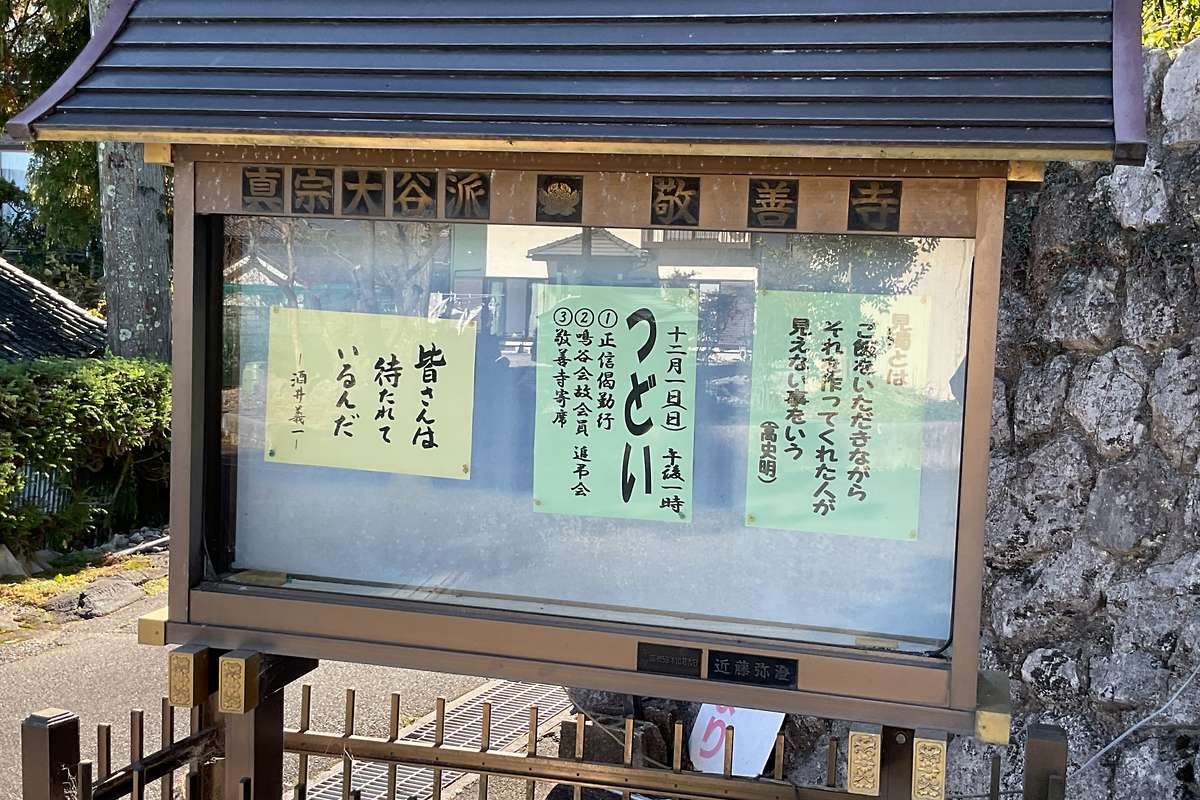 真宗大谷派 敬善寺
見濁とは
ご飯をいただきながら
それを作ってくれた人が
見えない事をいう
(高史明)
十二月一日(日) 午後一時
つどい
①正信偈勤行
②鳴谷会故会員 追弔会
③敬善寺寄席
皆さんは
待たれて
いるんだ
－酒井義一－
近藤弥澄